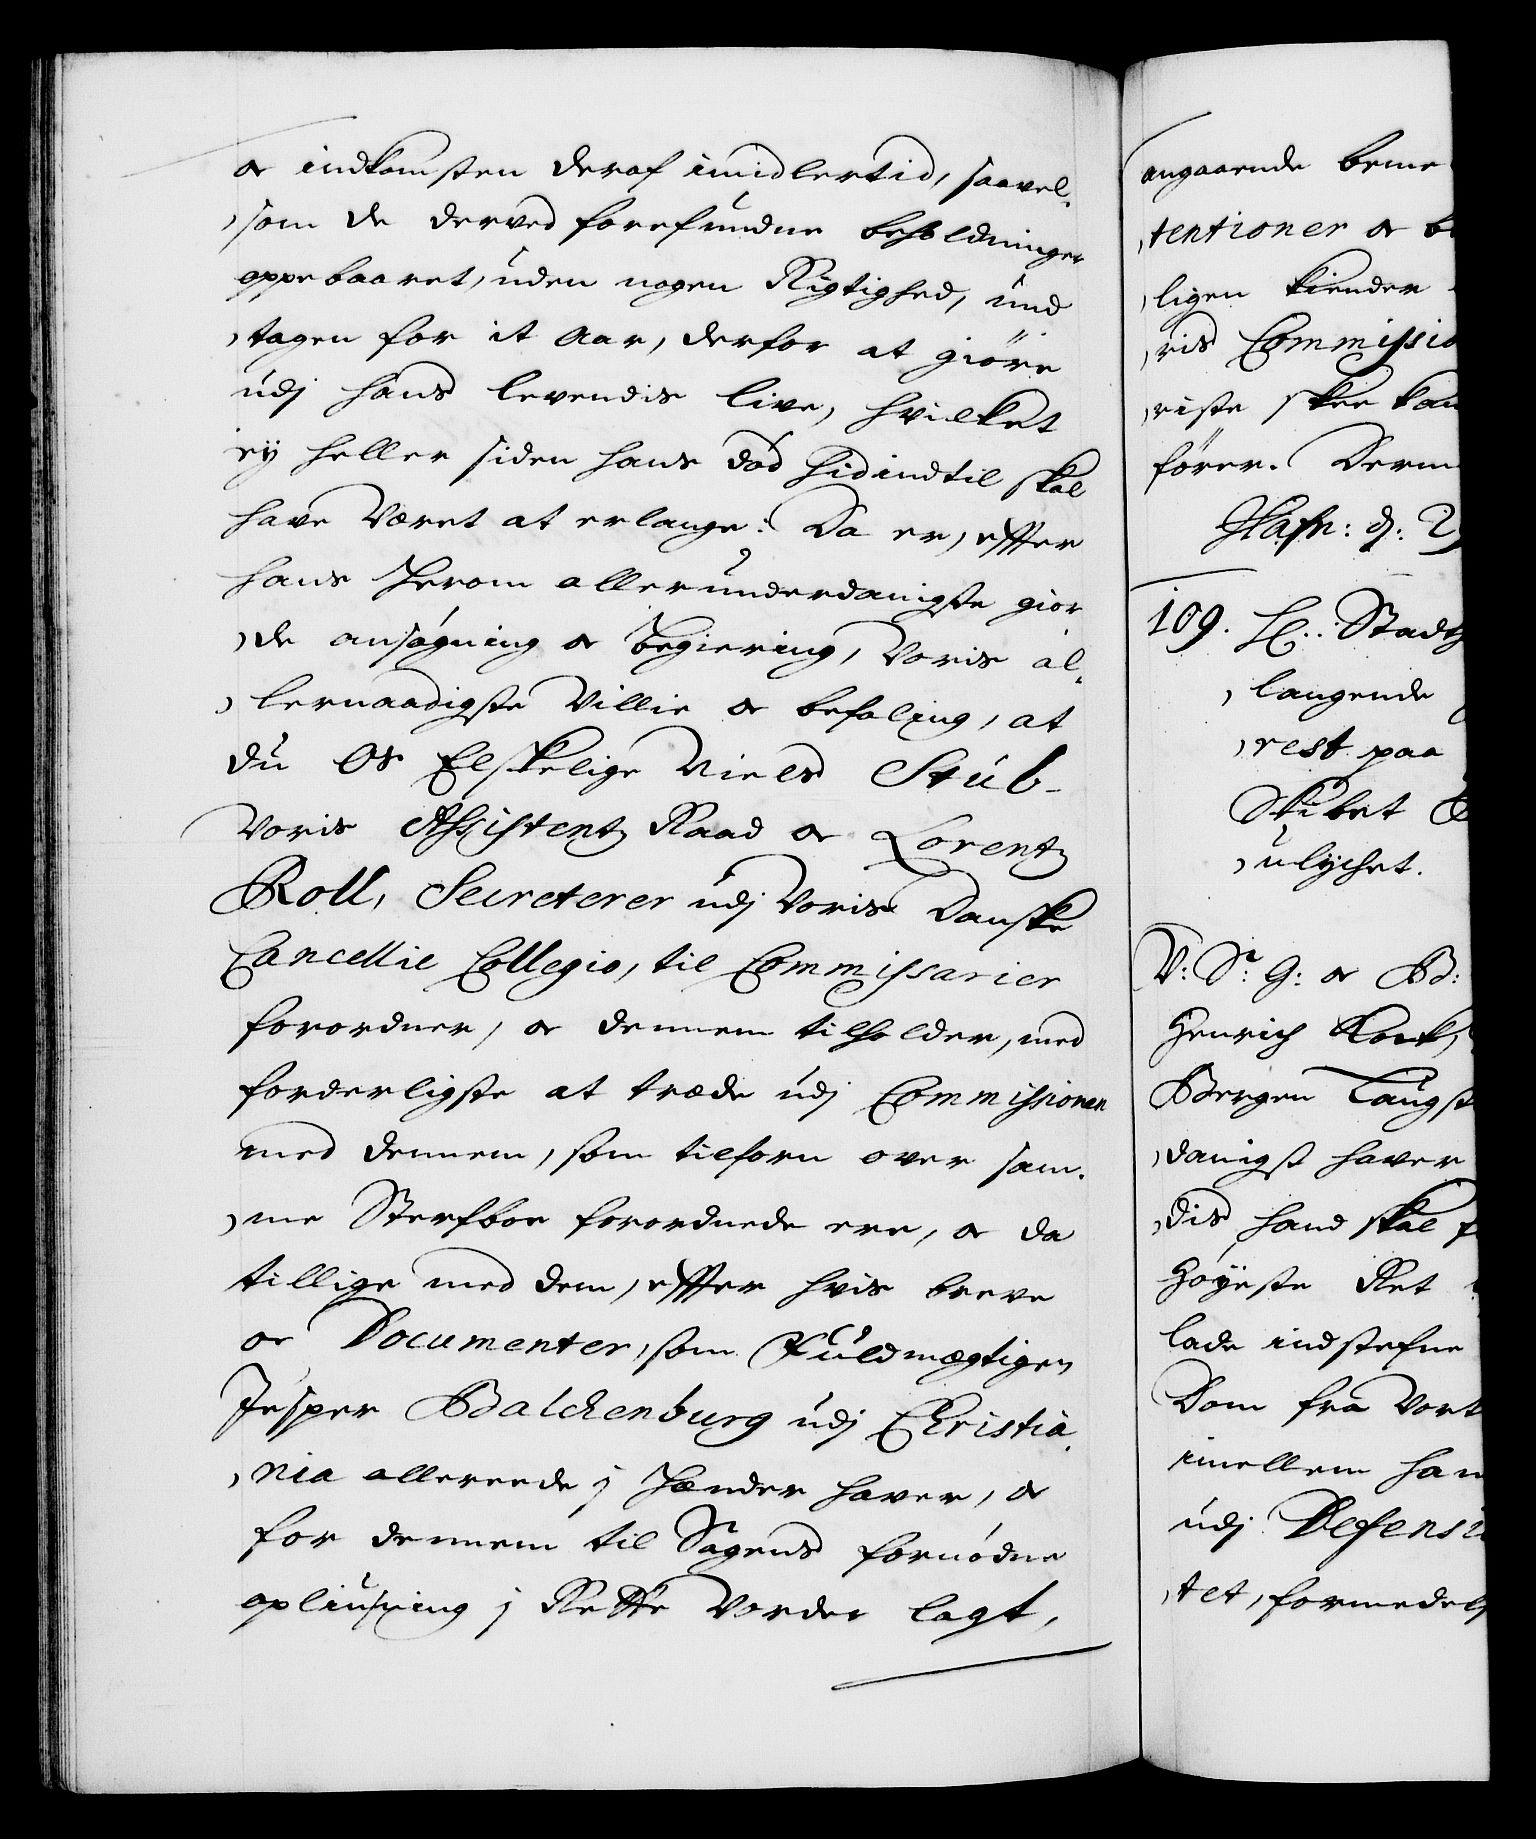 oc indkomsten deraf imidlertid, saavel-
som de derved forefundne beholdninger
oppebaaret, uden nogen Rigtighed, und
tagen for it Aar, derfor at giöre
udj hans levendis live, hvilket
ey heller siden hans död hidindtil skal
have Været at erlange: Da er, effter
hans herom allerunderdanigste gior
de ansögning oc begiering, Voris al-
lernaadigste Villie oc befaling, at
du Os Elskelige Niels Stub
Voris Assistentz Raad oc Lorentz
Roll, Secreterer udj Voris Danske
Cancellie Collegio, til Commissarier
forordner, oc dennem tilholder, med
forderligste at træde udj Commissionen
med dennem, som tilforn over sam-
me Sterfboe forordnede ere, oc da
tillige med dem, effter hvis breve
oc Documenter, som Fuldmægtigen
Jesper Balchenburg udj Christia-
nia allereede j hænder haver, oc
for dennem til Sagens fornödne
opliusning j Rette Vorder lagt,
angaaende beme
tentioner oc be
ligen kiender
ris Commissio
riste skee kan
förer. Derm
Hafn: d: 2
109. H: Stadth
langende
rest paa
Skibet
ulychet.
V: S: G: oc B:
Henrich
Bergen Laugst
danigst haver
dis hand skal f
Höyeste Ret
lade indstefne
Dom fra Vort
imellem ham
udj Defensi
tet, formedels